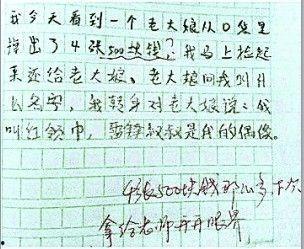 我今天看到一个老大娘从口袋里
掉出了4张500块钱,我马上捡起
来还给老大娘、老大娘问我叫什
么名字,我转身对老大娘说:我
叫红领巾,雷锋叔叔是我的偶像。
4张500块钱那么多下次
拿给老师开开眼界